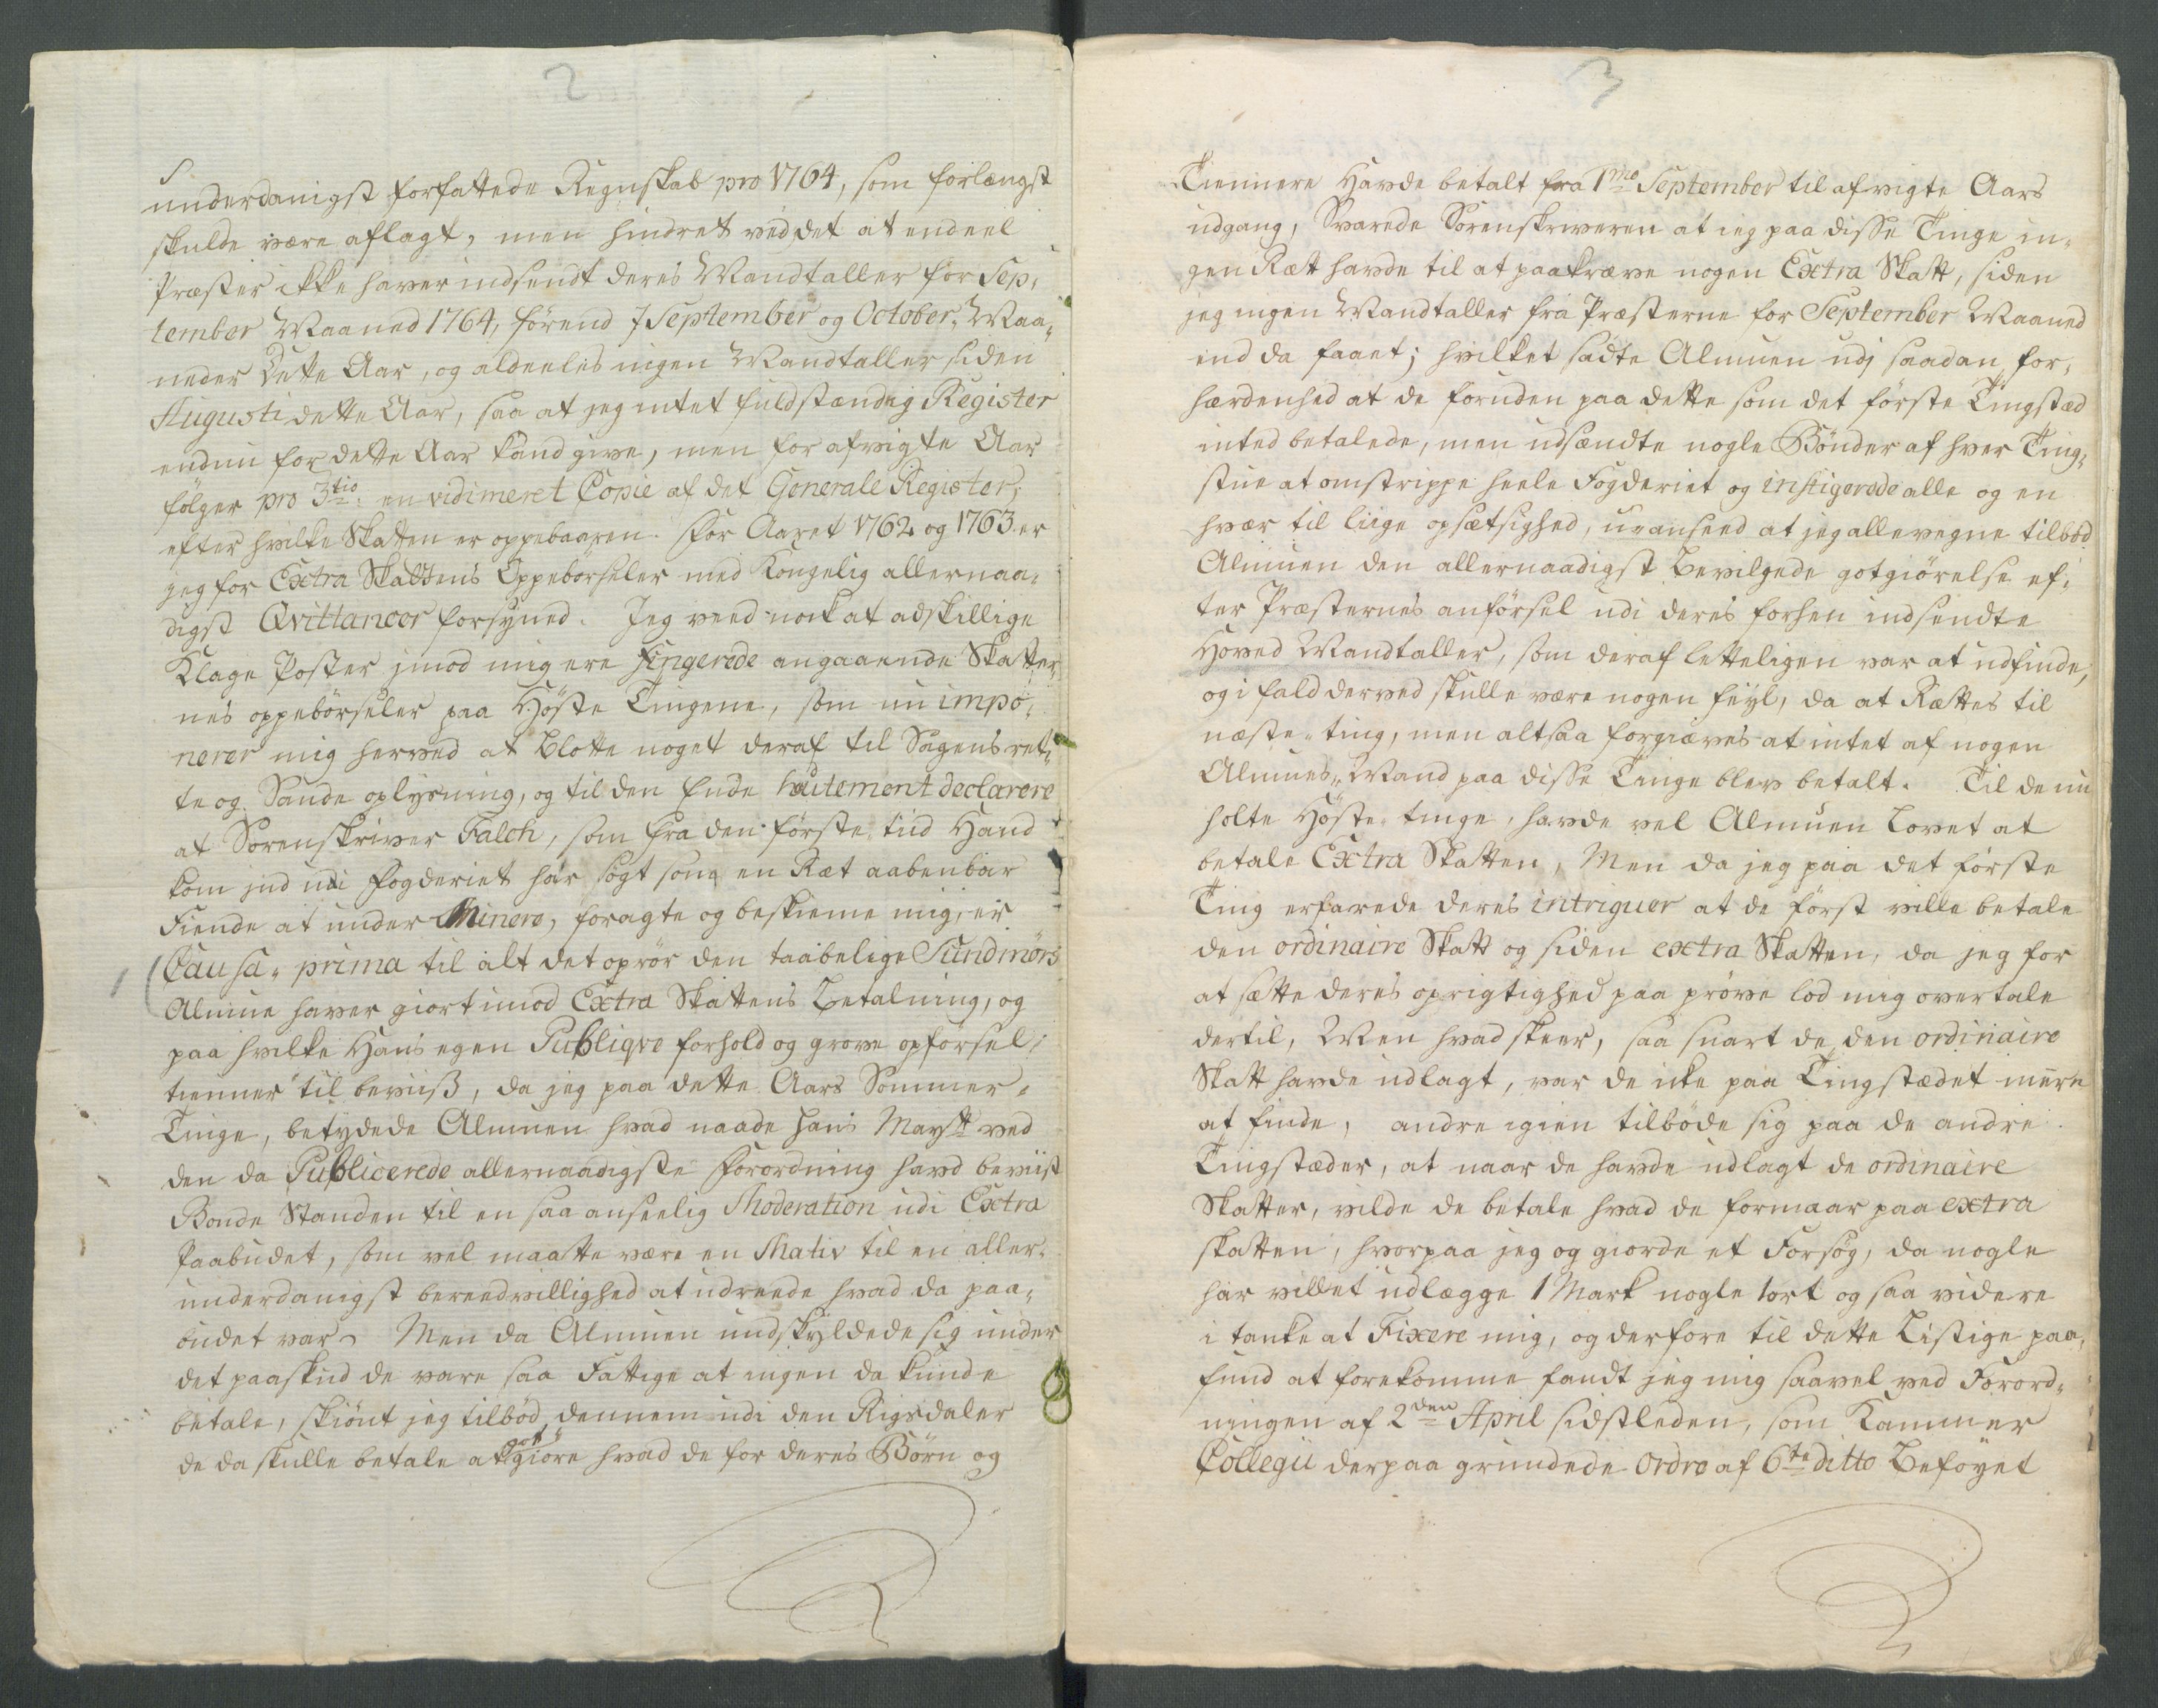 2
underdanigst forfattede Regnskab pro 1764, som forlængst
skulde være aflagt, men hindret ved det at endeel
Præster ikke haver indsendt deres Mandtaller for Sep-
tember Maaned 1764, førend j September og October Maa-
neder dette Aar, og aldeeles ingen Mandtaller siden
Augusti dette Aar, saa at jeg intet fuldstændig Register
endnu for dette Aar kand give, men for afvigte Aar
følger pro 3tio: en vidimeret Copie af det Generale Register,
efter hvilke Skatten er oppebaaren. For Aaret 1762 og 1763 er
jeg for Extra Skattens Oppebørseler med Kongelig allernaa-
digst Qvittancer forsyned. Jeg veed nock at adskillige
Klage Poster jmod mig ere fingerede angaaende Skatter-
nes oppebørseler paa Høste Tingene, som nu impo-
nerer mig herved at blotte noget deraf til Sagens ret-
te og Sande oplysning, og til den Ende hautement declarere
at Sorenskriver Falch, som fra den første tiid Hand
kom jnd udi fogderiet har søgt som en Ræt aabenbar
Fiende at under Minere, foragte og beskieme mig, er
Causa-prima til alt det oprør den taabelige Sundmørs
Almue haver giort imod Extra Skattens Betalning, og
paa hvilke Hans egen Publiqve forhold og grove opførsel
tienner til beviiß, da jeg paa dette Aars Sommer-
Tinge, betydede Almuen hvad naade Hans Maystt ved
den da Publicerede allernaadigste Forordning havd beviist
Bonde Standen til en saa anseelig Moderation udi Extra
Paabudet, som vel maatte være en Mativ til en aller-
underdanigst bereedvillighed at udreede hvad da paa-
budet var. Men da Almuen undskyldede sig under
det paaskud de vare saa Fattige at ingen da kunde
betale, skiønt jeg tilbød dennem udi den Rigsdaler
de da skulle betale at godtgiøre hvad de for deres Børn og
3
Tiennere Havde betalt fra 1mo September til afvigte Aars
udgang, Svarede Sorenskriveren at ieg paa disse Tinge in-
gen Ræt havde til at paakræve nogen Extra Skatt, siden
jeg ingen Mandtaller fra Præsterne for September Maaned
end da faaet; hvilket sadte Almuen udj saadan for-
hærdenhed at de foruden paa dette som det første Tingstæd
inted betalede, men udsændte nogle Bønder af hver Ting-
stue at omstrippe heele Fogderiet og instigerede alle og en
hvær til liige opsætsighed, uanseed at jeg allevegne tilbød
Almuen den allernaadigst Bevilgede gotgiørelse ef-
ter Præsternes anførsel udi deres forhen indsendte
Hoved Mandtaller, som deraf letteligen var at udfinde,
og i fald derved skulle være nogen feyl, da at Rættes til
næste-ting, men altsaa forgiæves at intet af nogen
Almues-Mand paa disse Tinge blev betalt. Til de nu
holte Høste-tinge, havde vel Almuen Lovet at
betale Extra Skatten, Men da jeg paa det første
Ting erfarede deres intriguer at de først ville betale
den ordinaire Skatt og siden extra Skatten, da jeg for
at sætte deres oprigtighed paa prøve lod mig overtale
dertil, Men hvad skeer, saa snart de den ordinaire
Skatt havde udlagt, var de icke paa Tingstædet meere
at finde, andre igien tilbøde sig paa de andre
Tingstæder, at naar de havde udlagt de ordinaire
Skatter, vilde de betale hvad de formaar paa extra
skatten, hvorpaa jeg og giorde et Forsøg, da nogle
har villet udlægge 1 Mark nogle 1ort og saa videre
i tanke at Fixere mig, og derfore til dette Listige paa-
fund at forekomme fandt jeg mig saavel ved Forord-
ningen af 2den April sidstleden, som Kammer
Collegii derpaa grundede Ordre af 6te ditto Beføyet